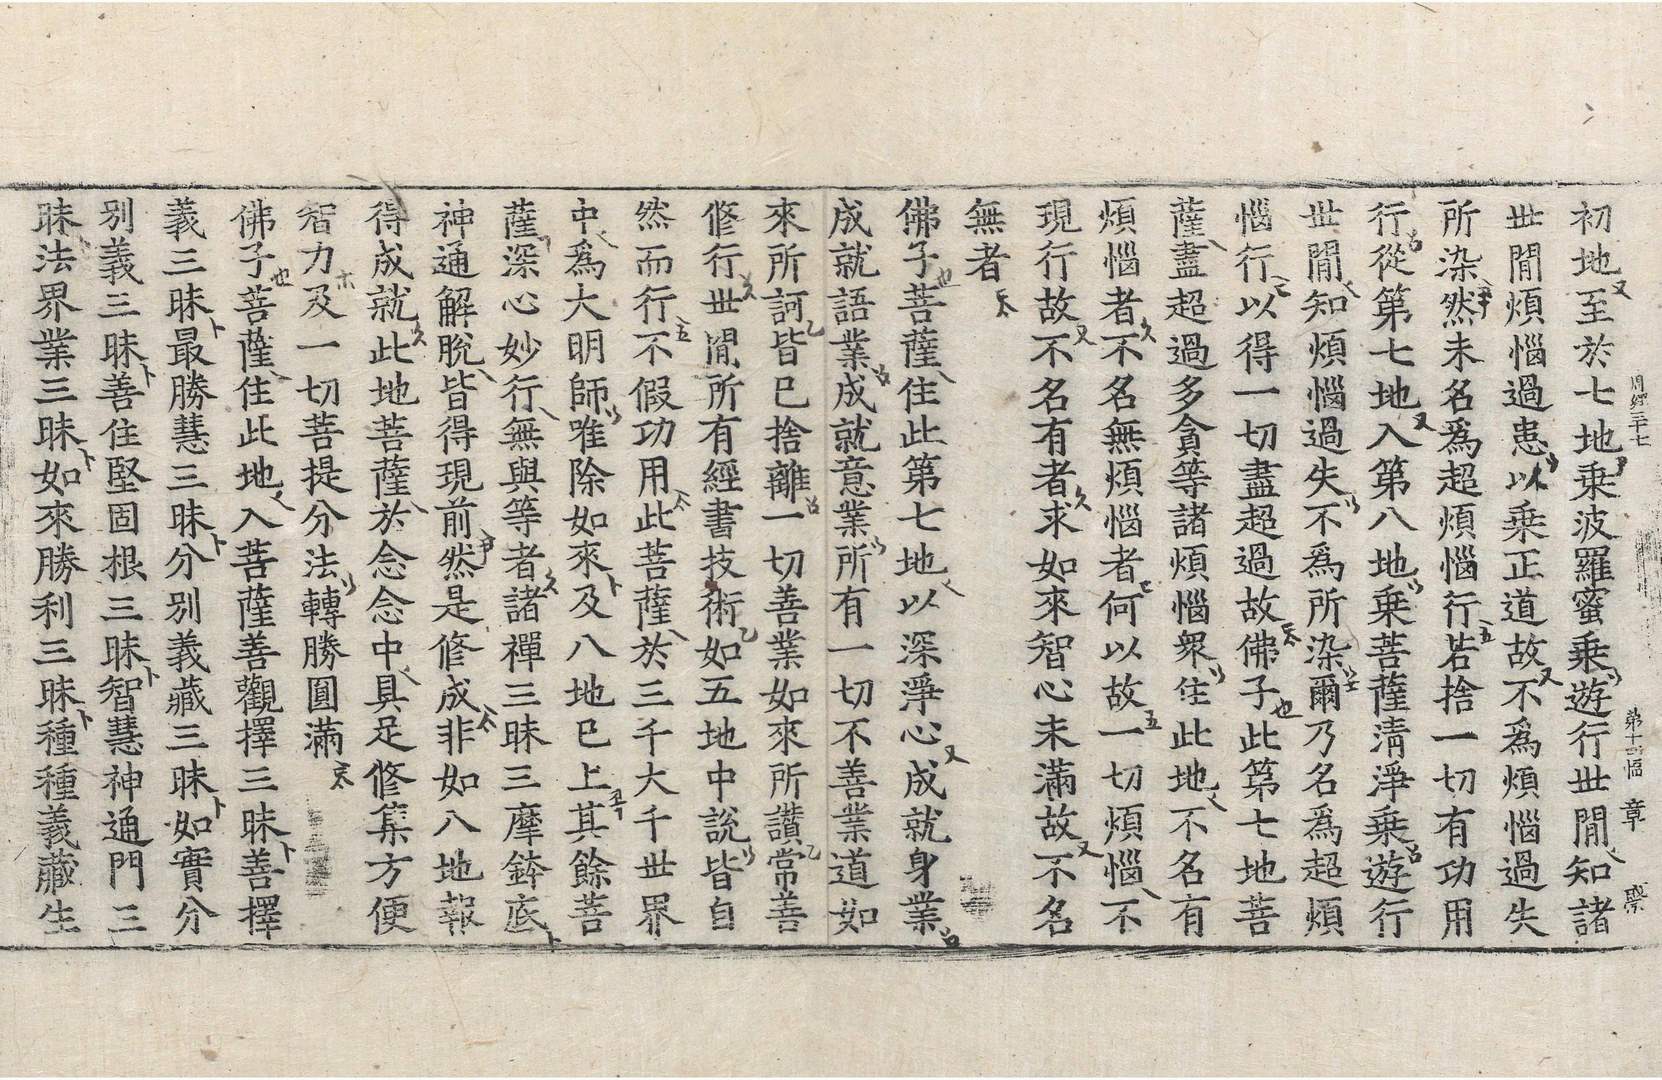 初地至於七地乗波羅蜜乗遊行世間知諸
世間煩惱過患以乗正道故不為煩惱過失
所染然未名為超煩惱行若捨一切有功用
行從第七地入第八地乗菩薩清淨乗遊行
世間知煩惱過失不為所染爾乃名為超煩
惱行以得一切盡超過故佛子此第七地菩
薩盡超過多貪等諸煩惱衆住此地不名有
煩惱者不名無煩惱者何以故一切煩惱不
現行故不名有者求如來智心未滿故不名
無者
佛子菩薩住此第七地以深淨心成就身業
成就語業成就意業所有一切不善業道如
來所訶皆已捨離一切善業如來所讃常善
修行世間所有經書技術如五地中說皆自
然而行不假功用此菩薩於三千大千世界
中為大明師唯除如來及八地已上其餘菩
薩深心妙行無與等者諸禪三昧三摩鉢底
神通解脫皆得現前然是修成非如八地報
得成就此地菩薩於念念中具足修集方便
智力及一切菩提分法轉勝圓滿
佛子菩薩住此地入菩薩善觀擇三昧善擇
義三昧最勝慧三昧分別義藏三昧如實分
別義三昧善住堅固根三昧智慧神通門三
昧法界業三昧如來勝利三昧種種義藏生